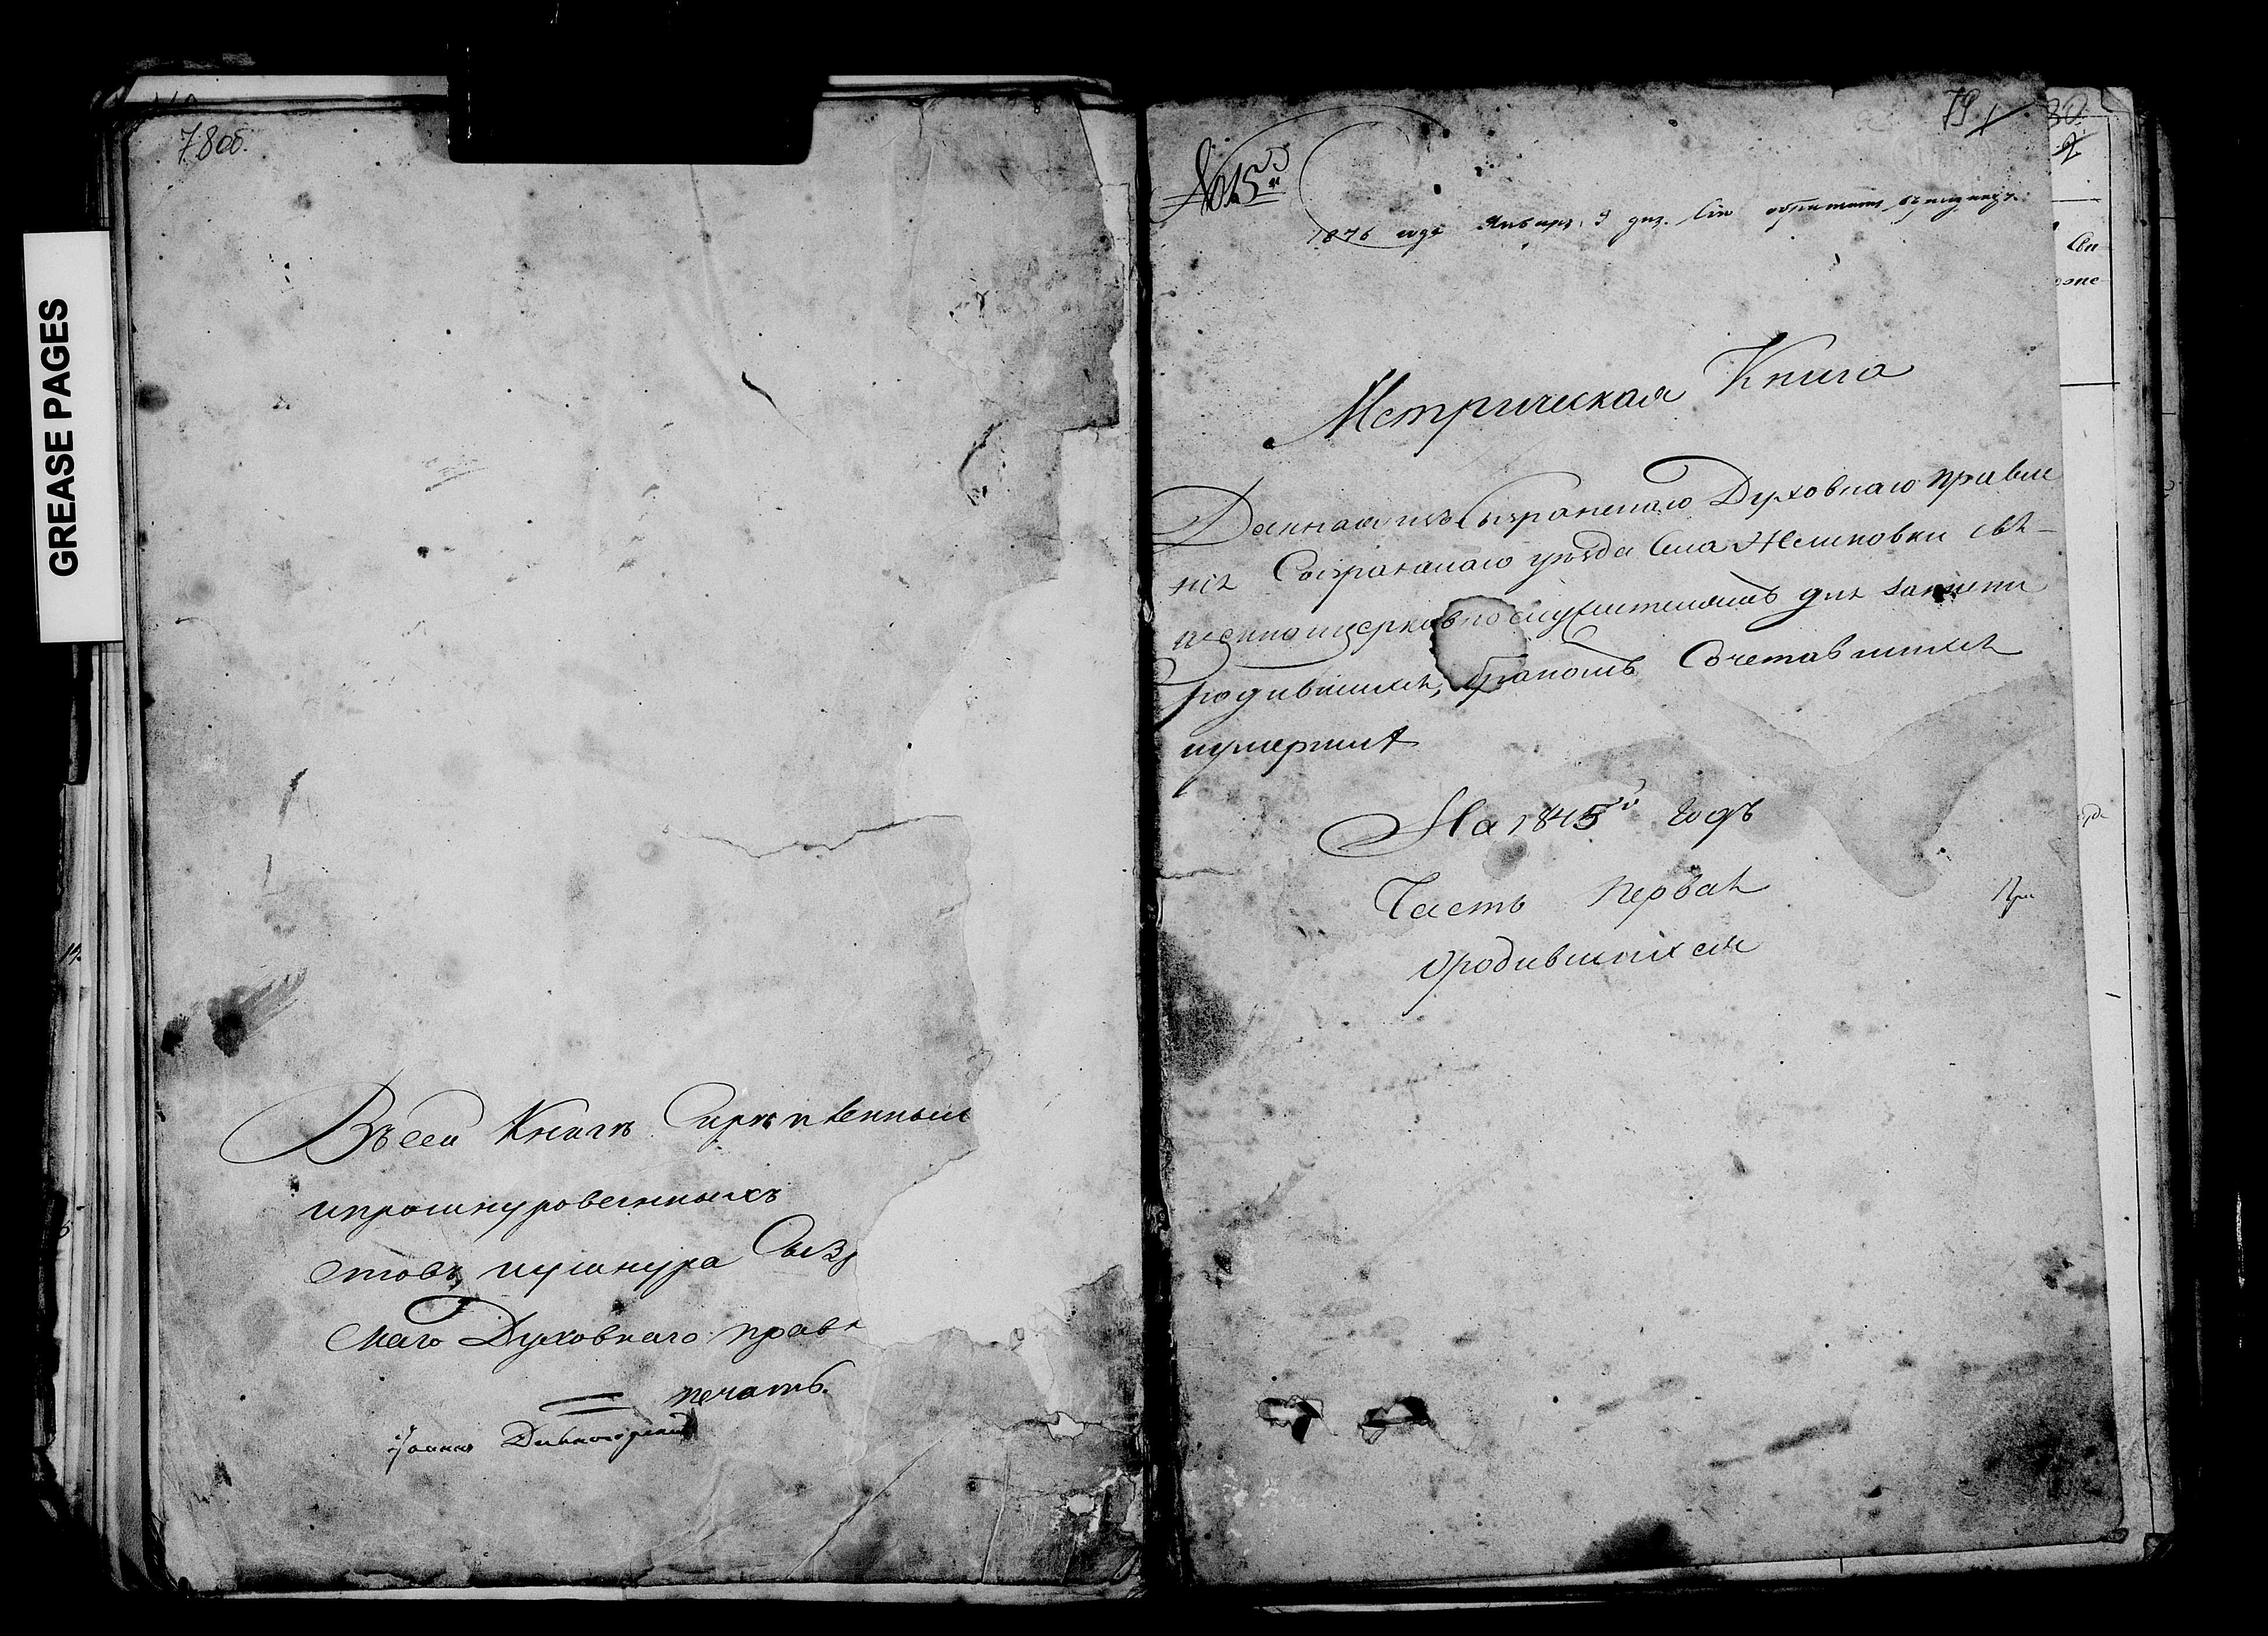 GREASE PAGES
78 об.
Въ сей Книгѣ скрѣпленныхъ
ипрошнурованныхъ
стовъ, ишнура Сыз
скаго Духовнаго прав
печать.
Іоаннъ
79
80
1876 года Января 9 дня.
Метрическая Книга
Данная изъ Сызранскаго Духовнаго правле
нія Сызранскаго уѣзда села свя-
щенноцерковнослужителямъ для записи
родившихся, бракомъ Сочетавшихся
иумершихъ
На 1845й годъ
Часть первая
ородившихся